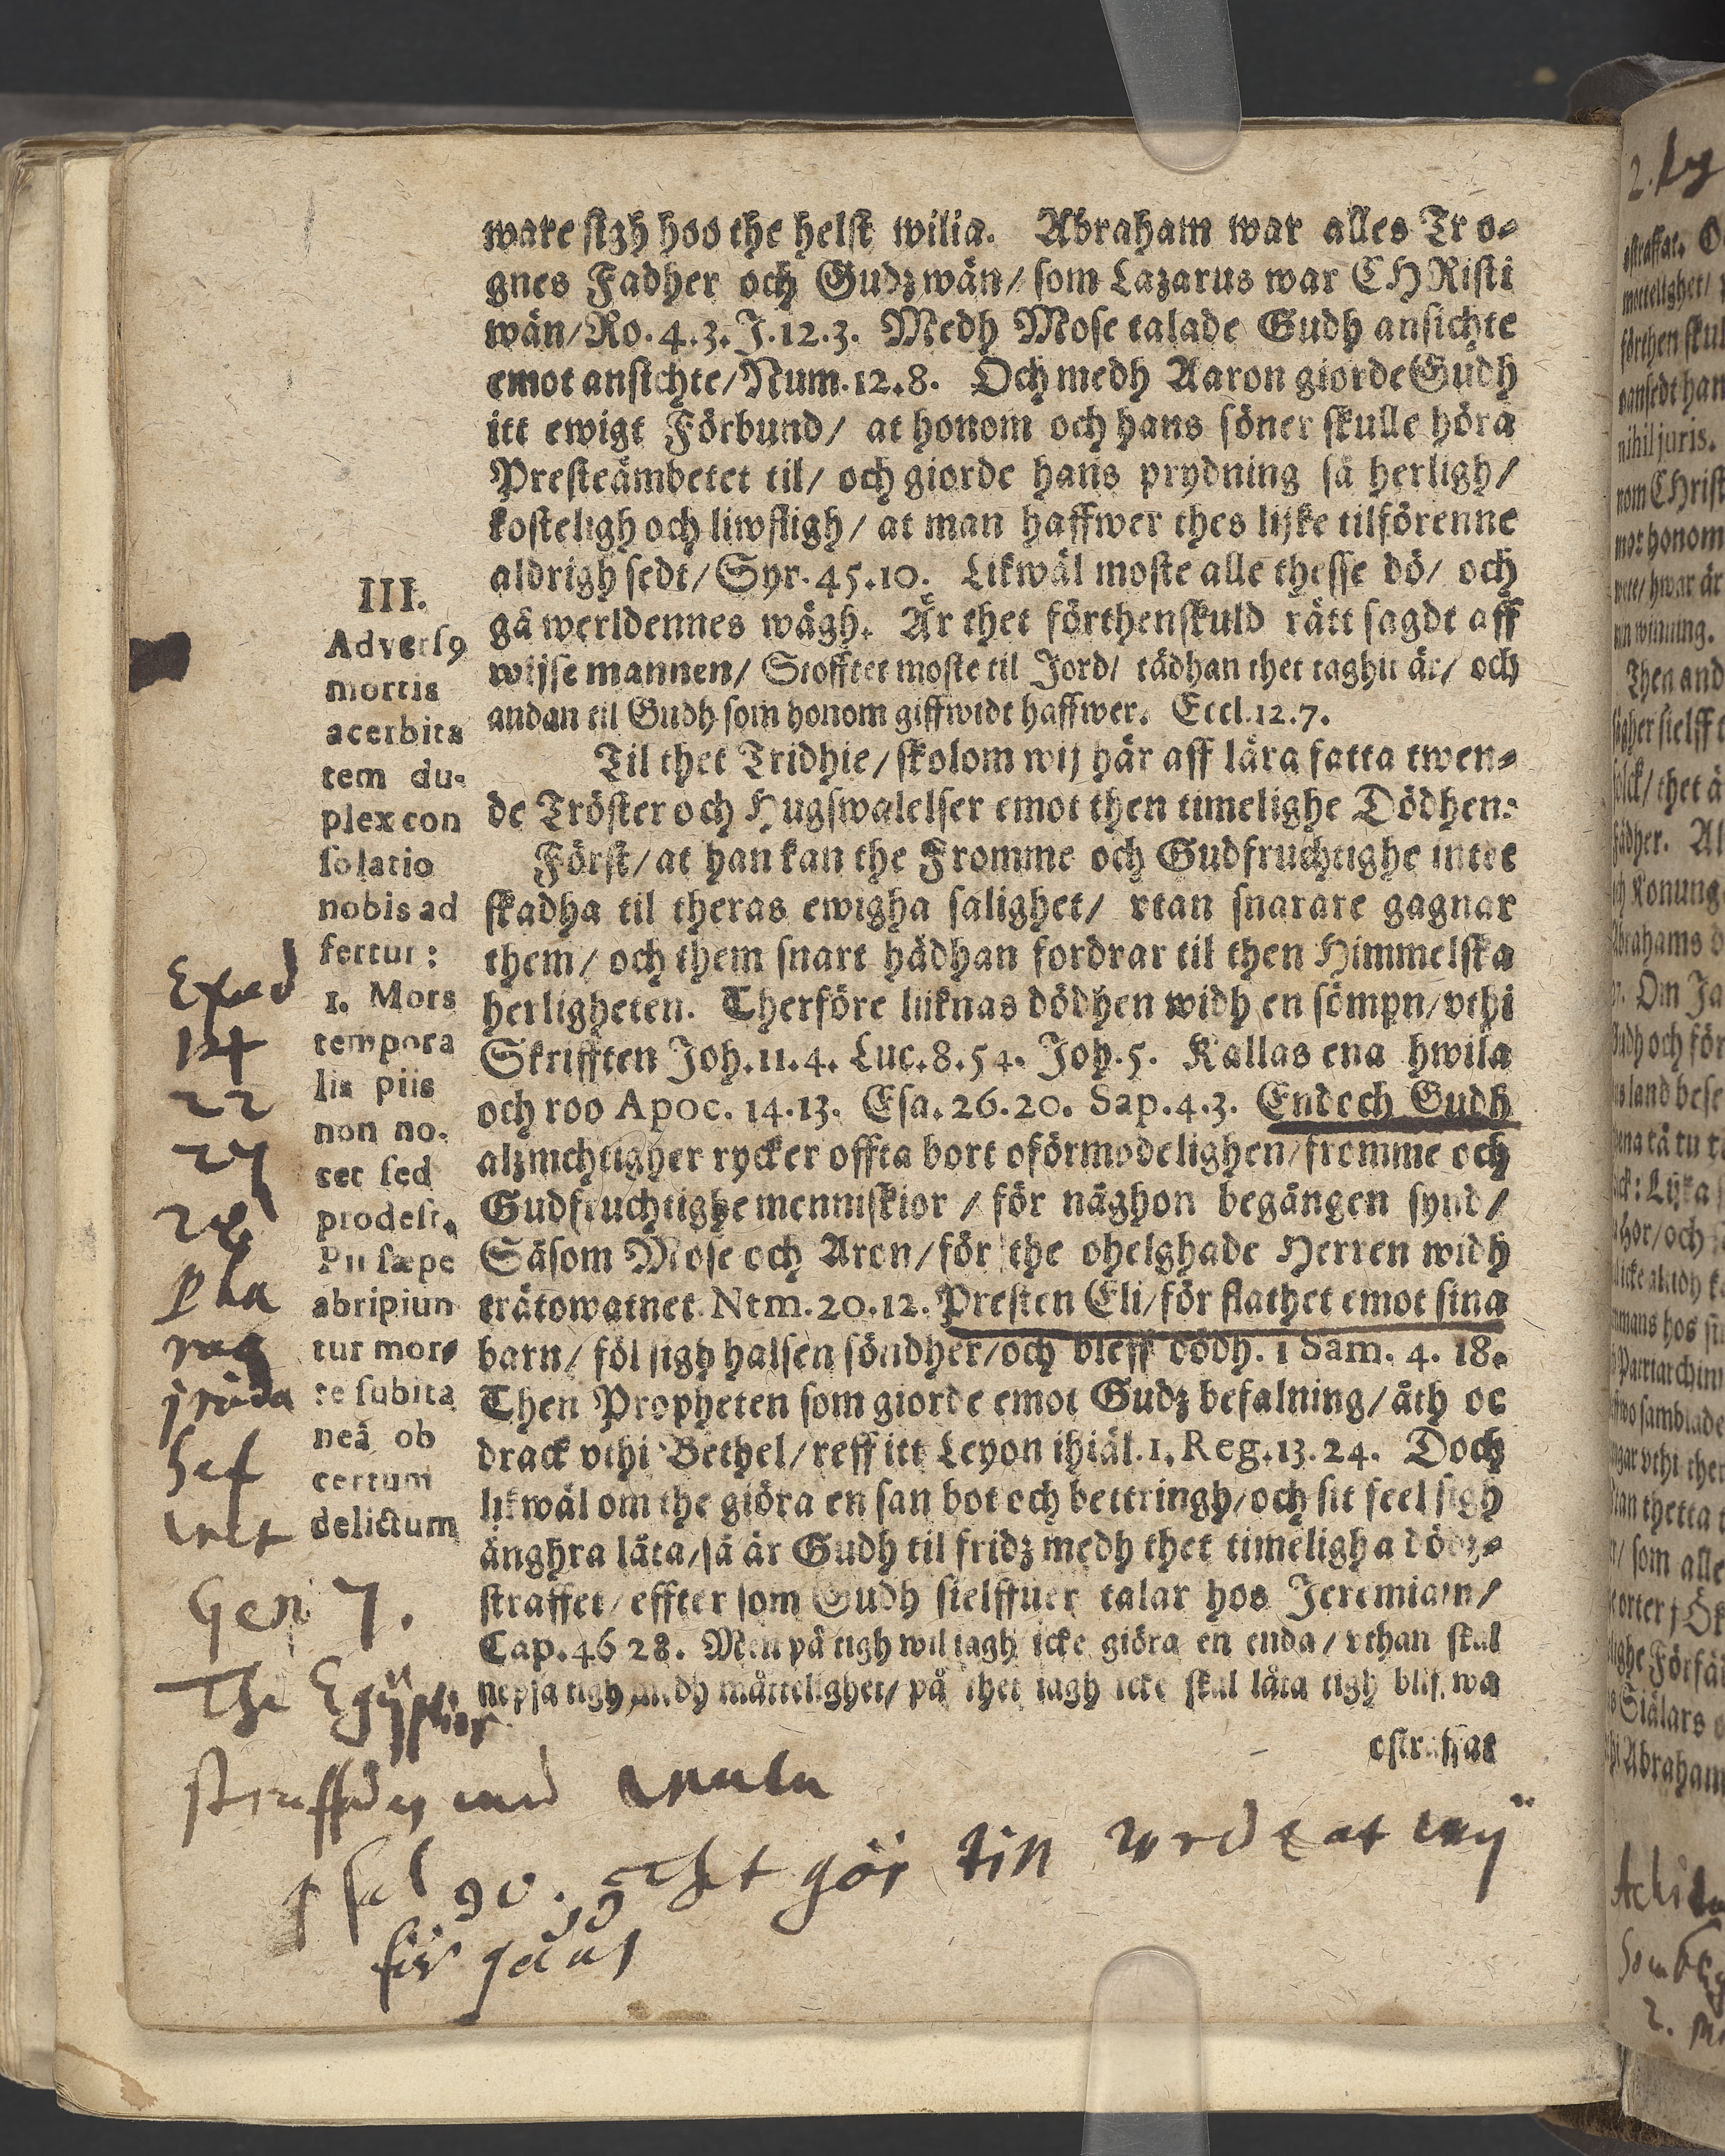 ware sigh hos the helst wilia. Abraham war alles Tro-
gnes Fadher och Gudz wän/ som Lazarus war CHRisti
wän/ Ro. 4.3. J. 12.3. Medh Mose talade Gudh ansichte
emot ansichte/ Num. 12.8. Och medh Aaron giorde Gudh
itt ewigt Förbund/ at honom och hans söner skulle höra
Presteämbetet til/ och giorde hans prydning så herligh/
kosteligh och liwfligh/ at man haffwer thes lijke tilförenne
aldrigh sedt/ Syr. 45.10. Likwäl moste alle thesse dö/ och
gå werldennes wägh. Är thet förthenskuld rätt sagdt aff
wijse mannen/ Stofftet moste til Jord/ tädhan thet taghit är/ och
andan til Gudh som honom giffwidt haffwer. Eccl. 12.7.
Til thet Tridhie/ skolom wij här aff lära fatta twen-
de Tröster och Hugswalelser emot then timelighe Dödhen:
Först/ at han kan the Fromme och Gudfruchtighe intet
skadha til theras ewigha salighet/ vtan snarare gagnar
them/ och them snart hädhan fordrar til then Himmelska
herligheten. Therföre lijknas dödhen widh en sömpn/ vthi
Skrifften Joh. 11.4. Luc. 8.54. Joh. 5. Kallas ena hwila
och roo Apoc. 14.13. Esa. 26.20. Sap. 4.3. Endech Gudh
alzmchtigher rycker offta bort oförmodelighen/ fromme och
Gudfruchtighe menniskior / för näghon begången synd/
Såsom Mose och Aron/ för the ohelghade Herren widh
trätowatnet. Ntm. 20.12. Presten Eli/ för flathet emot sina
barn/ föl sigh halsen söndher/ och bleff dödh. 1 Sam. 4. 18.
Then Propheten som giorde emot Gudz befalning/ åth oc
drack vthi Bethel/ reff itt Leyon ihiäl. 1. Reg. 13.24. Doch
likwäl om the giöra en san bot och bettringh/ och sit feel sigh
ånghra låta/ så är Gudh til fridz medh thet timeligha dödz-
straffet/ effter som Gudh sielffuer talar hos Jeremiam/
Cap. 46 28. Men på tigh wil iagh icke giöra en enda/ vthan skal
nepsa tigh medh måttelighet/ på thet iagh icke skal låta tigh blifwa
ostraffat
III.
Adversꝰ
mortis
acerbita
tem du-
plex con
solatio
nobis ad
fertur:
1. Mors
tempora
lis piis
non no-
cet sed
prodest.
Pii sæpe
abripiun
tur mor-
te subita
neâ ob
certum
delictum
Exod
14
22
27
28
Pha
rao
Gen 7.
The Egÿptier
straffades med
Psal 90. Thet gör tin wrede at wÿ